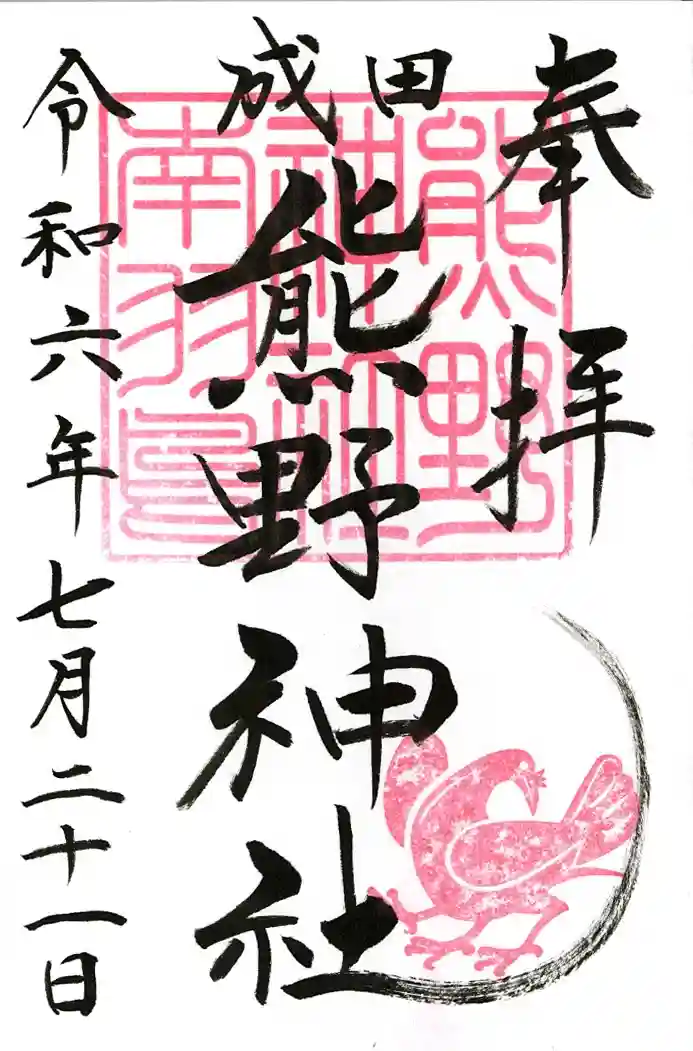 奉拝
成田
熊野神社
令和六年七月二十一日
熊野
神社
南羽鳥